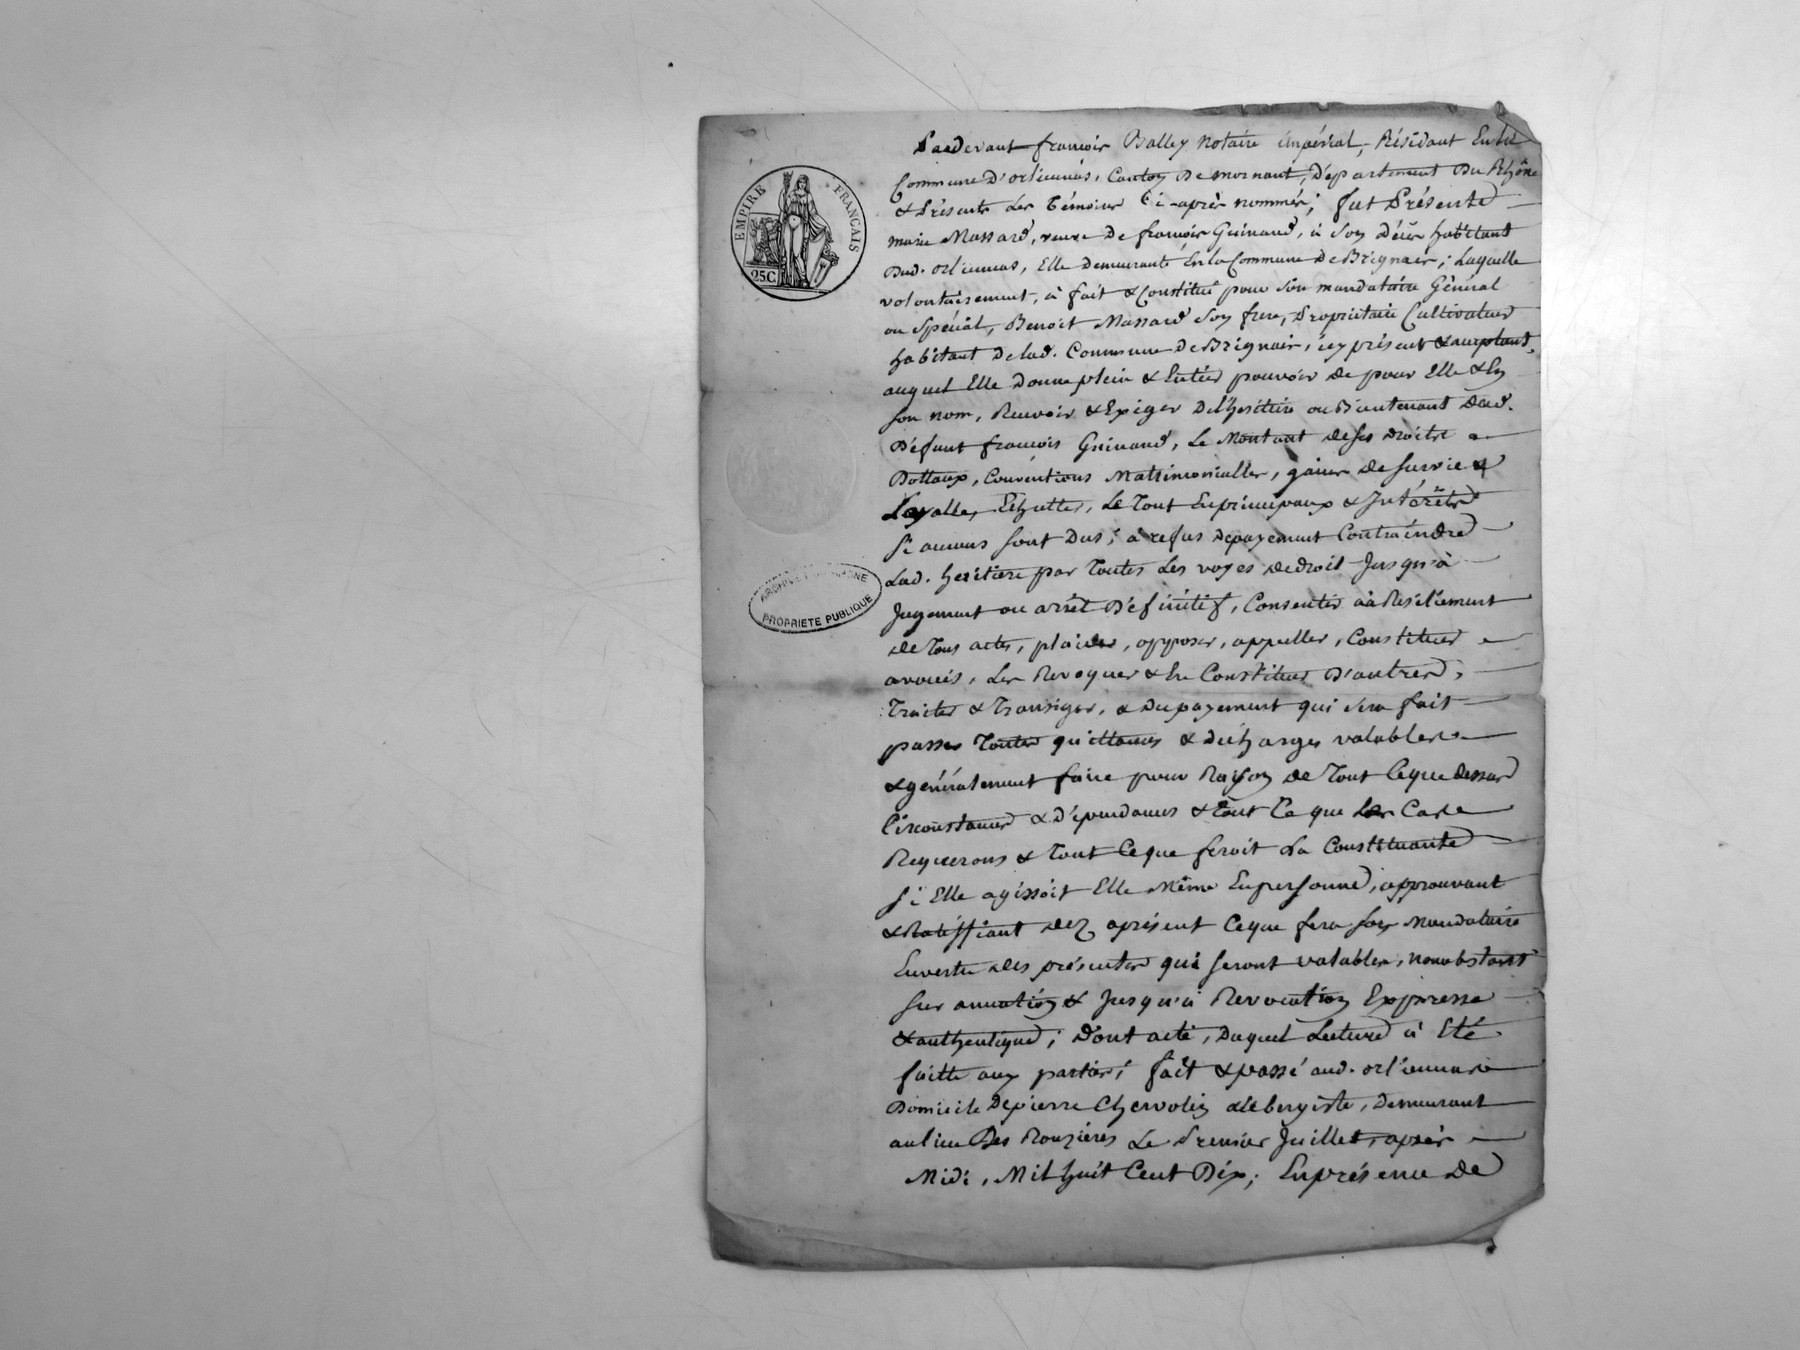 EMPIRE FRANÇAIS
25C
PROPRIETE PUBLIQUE
Pardevant françois Balley Notaire impérial, Résidant En la
Commune d'orliennas, Canton De mornant, Département Du Rhône
& Présents Les Témoins Ci-après nommés; fut Présente
marie Massard, veuve De françois Guinand, à Son décès habitant
Dud. orliennas, Elle demeurante En la Commune De Brignais; Laquelle
volontairement, à fait & Constitué pour Son mandataire Général
ou Spécial, Benoit Massard Son frere, Propriétaire Cultivateur
habitant De lad. Commune De Brignais, icy présent & acceptant,
auquel Elle donne plein & Entier pouvoir de pour Elle & En
Son nom, Recevoir & Exiger De L'heritière ou Bientenant dud.
Défunt françois Guinand, Le Montant de Ses droits
Dottaux, Conventions Matrimonialles, gains de Survie &
Loyalle, Echuttes, Le Tout En principaux & Intérêts
Si aucuns Sont Dus; à refus de payement Contraindre
Lad. heritiere par Toutes Les voyes de droit Jusqu'à
Jugement ou arrêt Définitif, Consentir à a Résiliement
de Tous actes, plaider, opposer, appeller, Constituer
avoués, Les Revoquer & En Constituer D'autres,
Traiter & Transiger, & du payement qui Sera fait
passer Toutes quittances & décharges valables
& généralement faire pour Raison de Tout Ceque dessus
Circonstances & dépendances & tout Ce que Les Cas
Requerrons & Tout Ceque feroit La Constituante
Si Elle agissoit Elle Même En personne, approuvant
& Ratiffiant dez aprésent Ceque fera Son Mandataire
En vertu des présentes qui Seront valables, nonobstant
Surannation & Jusqu'à Revocation Expresse
& authentique; dont acte, Duquel Lecture à Eté
faitte aux parties; fait & passé aud. orliennas
Domicile De pierre Chervolin aubergiste, demeurant
au lieu Des Rouzières Le Premier Juillet, après
Midi, Mil huit Cent Dix; En présence de